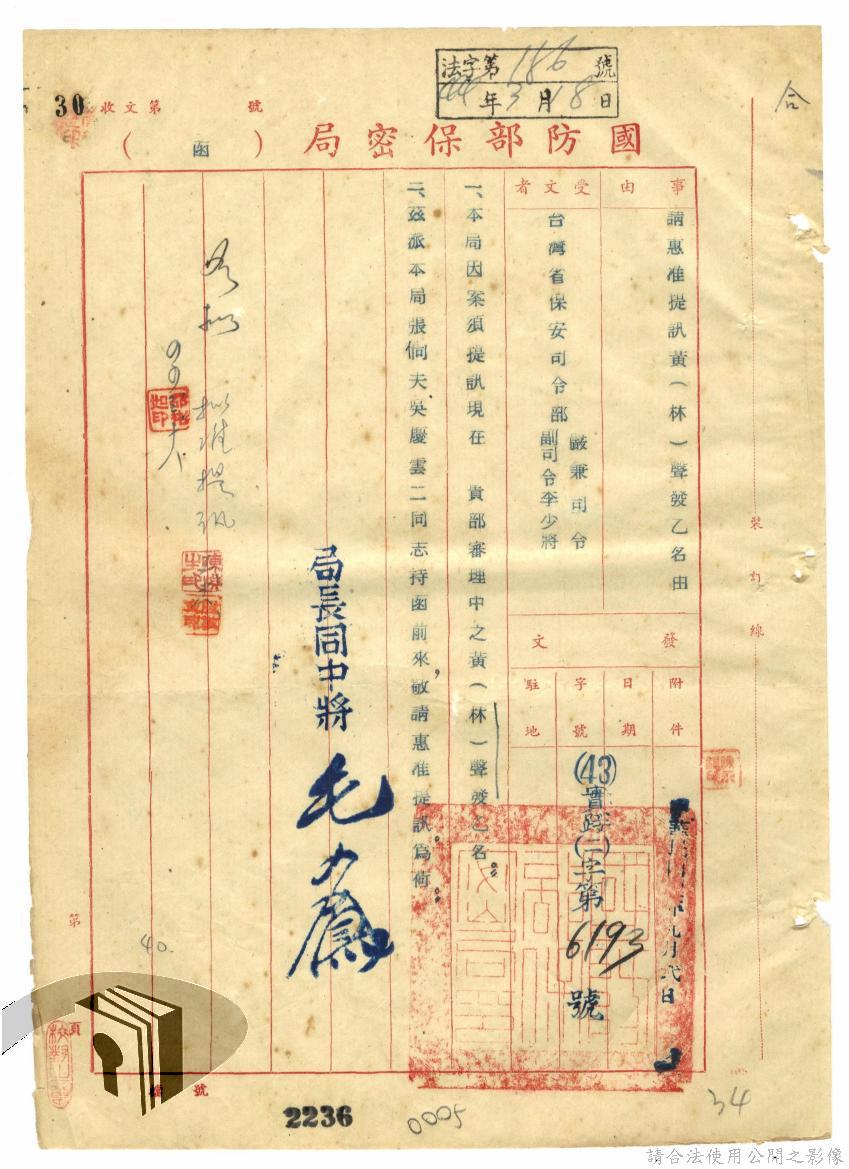 法字第186號
44年3月18日
30
收文第 號
合
國防部保密局（函）
事由
請惠准提訊黃（林）聲發乙名由
受文者
台灣省保安司令部
嚴兼司令
副司令李少將
發文
附件
日期
九月 日
字號
(43)實踐(二)字第6193號
駐地
一、本局因案須提訊現在 貴部審理中之黃（林）聲發乙名。
二、茲派本局張 夫吳慶雲二同志持函前來，敬請惠准提訊為荷。
局長同中將 毛人鳳
擬准提訊
裝訂線
第
頁
40.
號
2236
0005
34
請合法使用公開之影像